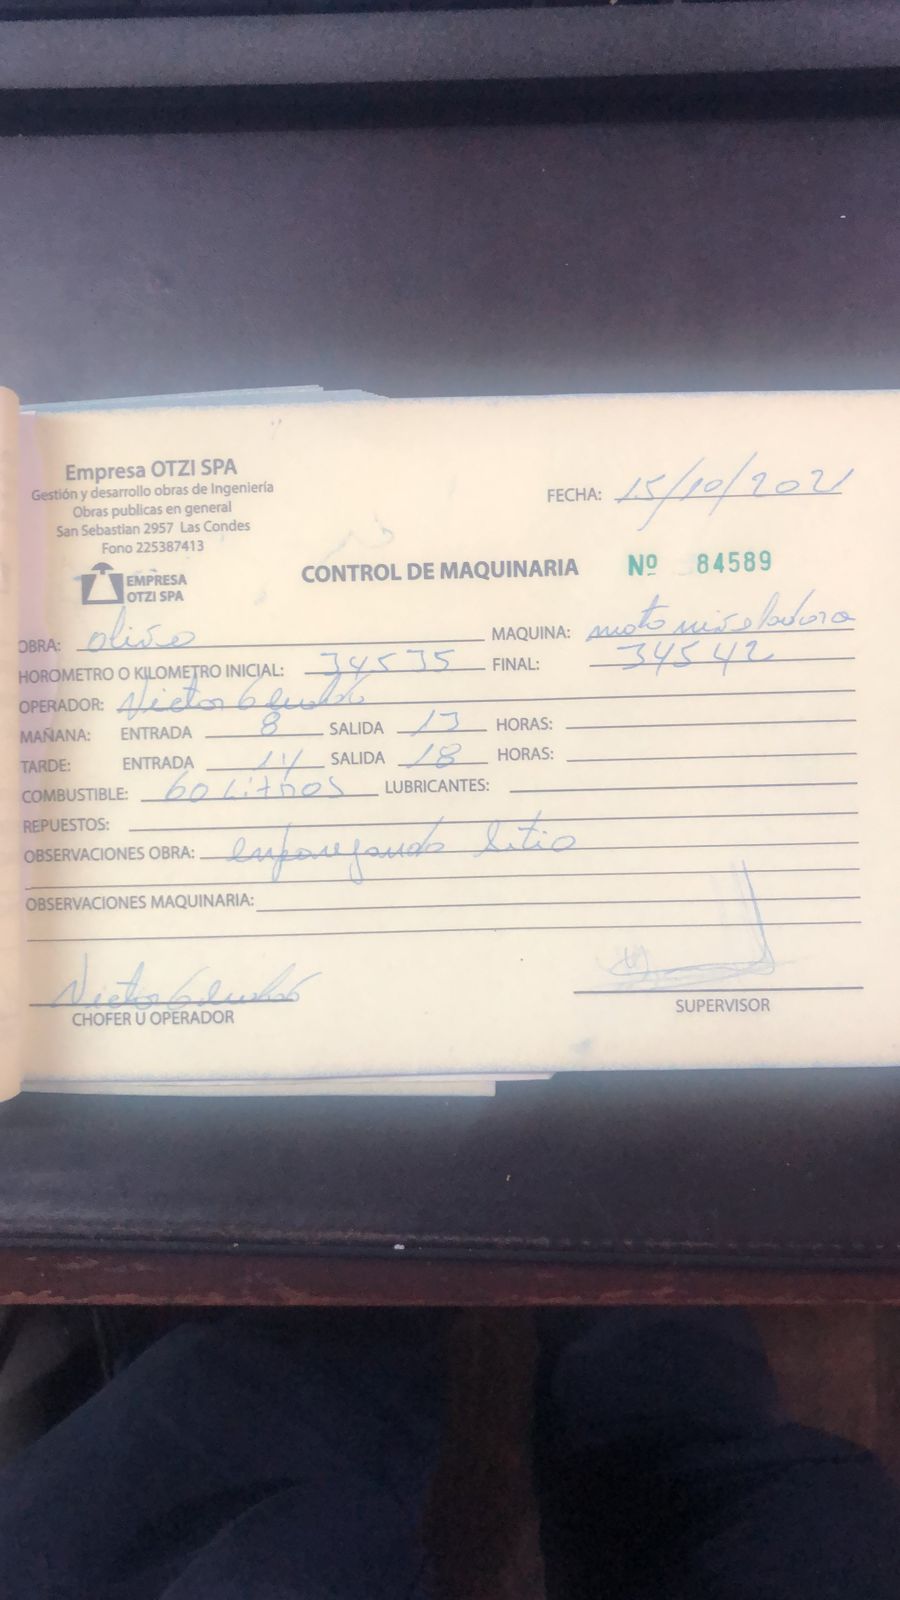 Empresa OTZI SPA
Gestión y desarrollo obras de Ingeniería
Obras publicas en general
San Sebastian 2957 Las Condes
Fono 225387413
EMPRESA
OTZI SPA
FECHA: 15/10/2021
CONTROL DE MAQUINARIA Nº 84589
OBRA: olivo MAQUINA: moto niveladora
HOROMETRO O KILOMETRO INICIAL: 34535 FINAL: 34542
OPERADOR: Victor
MAÑANA: ENTRADA 8 SALIDA 13 HORAS:
TARDE: ENTRADA 14 SALIDA 18 HORAS:
COMBUSTIBLE: 60 Litros LUBRICANTES:
REPUESTOS:
OBSERVACIONES OBRA: emparejando Sitio
OBSERVACIONES MAQUINARIA:
Victor
CHOFER U OPERADOR
SUPERVISOR